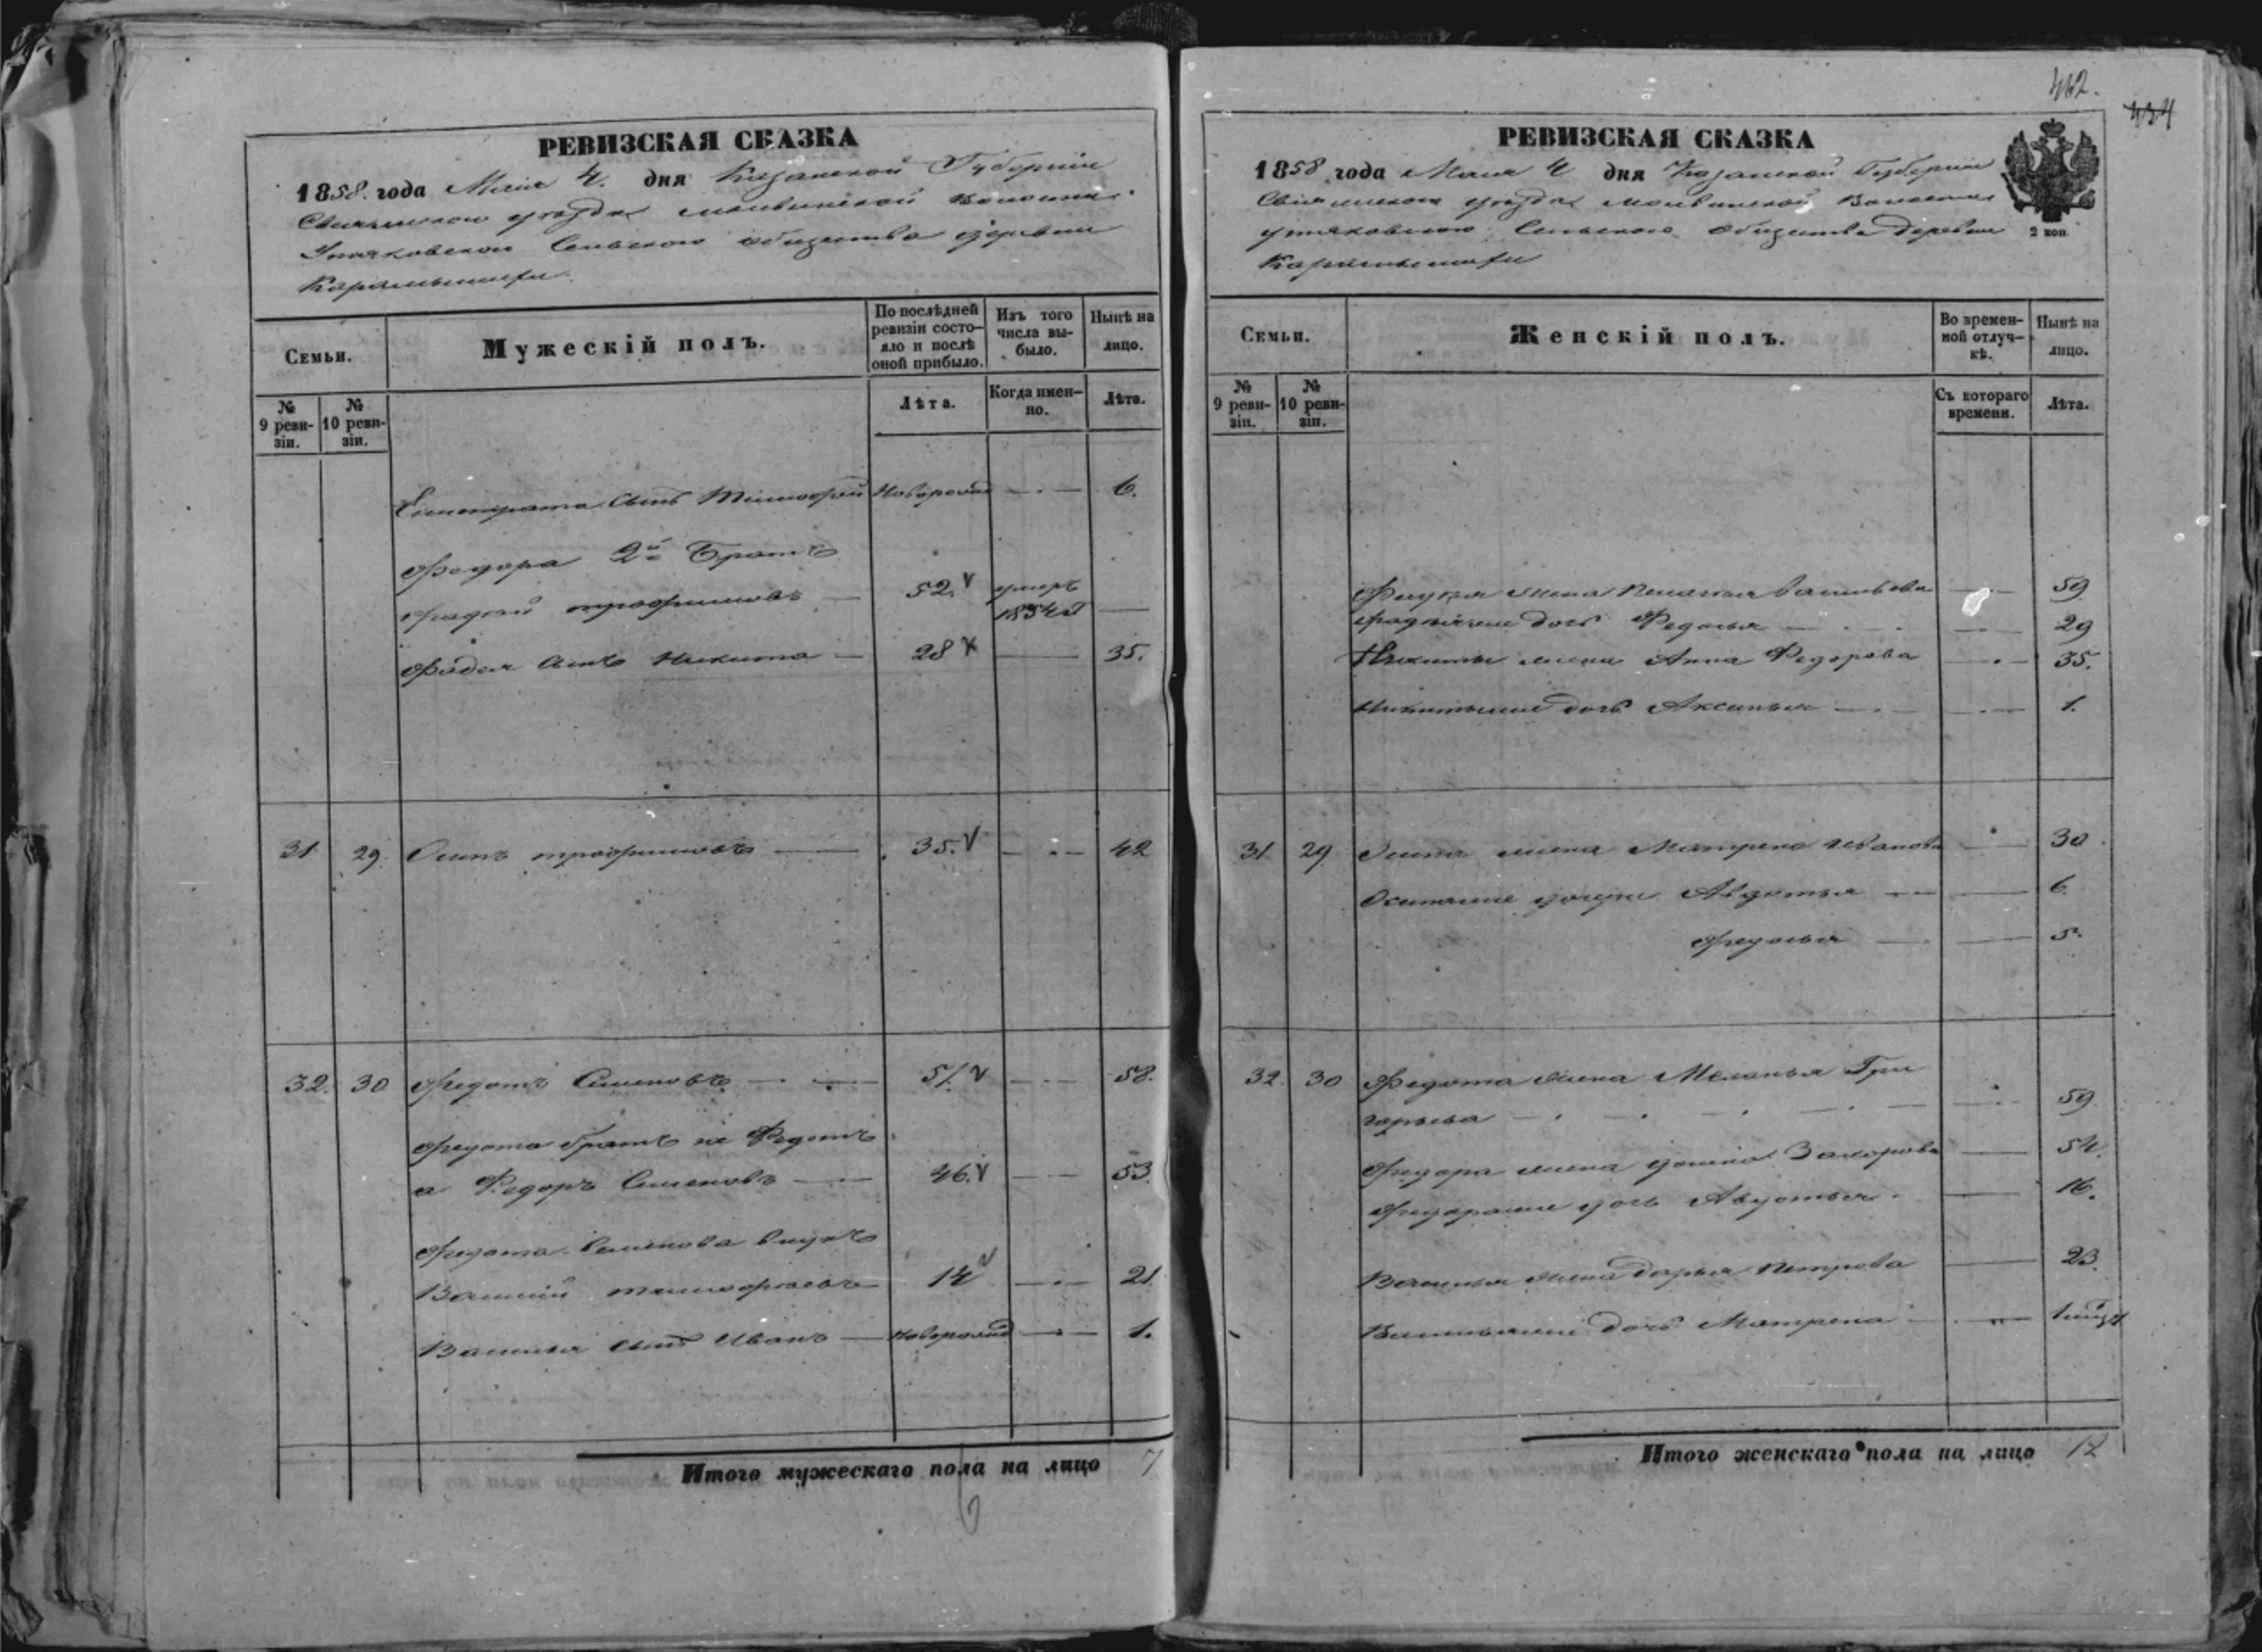 462.
434
РЕВИЗСКАЯ СКАЗКА
1858. года Маія 4. дня Казанской Губерніи
Свіяжскаго уѣзда волости
Сельскаго общества деревни
Карамышихи
Семьи.
Мужескій полъ.
По послѣдней ревизіи состояло и послѣ оной прибыло.
Изъ того числа выбыло.
Нынѣ на лицо.
№ 9 ревизіи.
№ 10 ревизіи.
Лѣта.
Когда именно.
Лѣта.
сынъ Тимофей Новорожд 6.
Федора 2й Братъ
Фадѣй Трофимовъ 52. умеръ 1854го
Фадея сынъ Никита 28 35.
31 29. Осипъ Трофимовъ 35. 42
32. 30 Федотъ Семеновъ 51. 58.
Федота братъ не Федотъ
а Федоръ Семеновъ 46. 53.
Федота Семенова внукъ
Василій Тимофеевъ 14 21.
Василья сынъ Иванъ Новорожд 1.
Итого мужескаго пола на лицо 7
6
РЕВИЗСКАЯ СКАЗКА
1858 года Маія 4 дня Казанской Губерніи
Свіяжскаго уѣзда Волости
Сельскаго общества деревни
Карамышихи
2 коп.
Семьи.
Женскій полъ.
Во временной отлучкѣ.
Нынѣ на лицо.
№ 9 ревизіи.
№ 10 ревизіи.
Съ котораго времени.
Лѣта.
жена Пелагея Васильева 59
дочь Федосья 29
Никиты жена Анна Федорова 35.
дочь Аксинья 1.
31. 29. Осипа жена Матрена Иванова 30
дочери Авдотья 6.
Федосья 5.
32. 30 Федота жена Меланья Гри
горьева 59
Федора жена Захарова 54.
дочь Авдотья 16.
Василья жена Дарья Петрова 23.
дочь Матрена
Итого женскаго пола на лицо 12